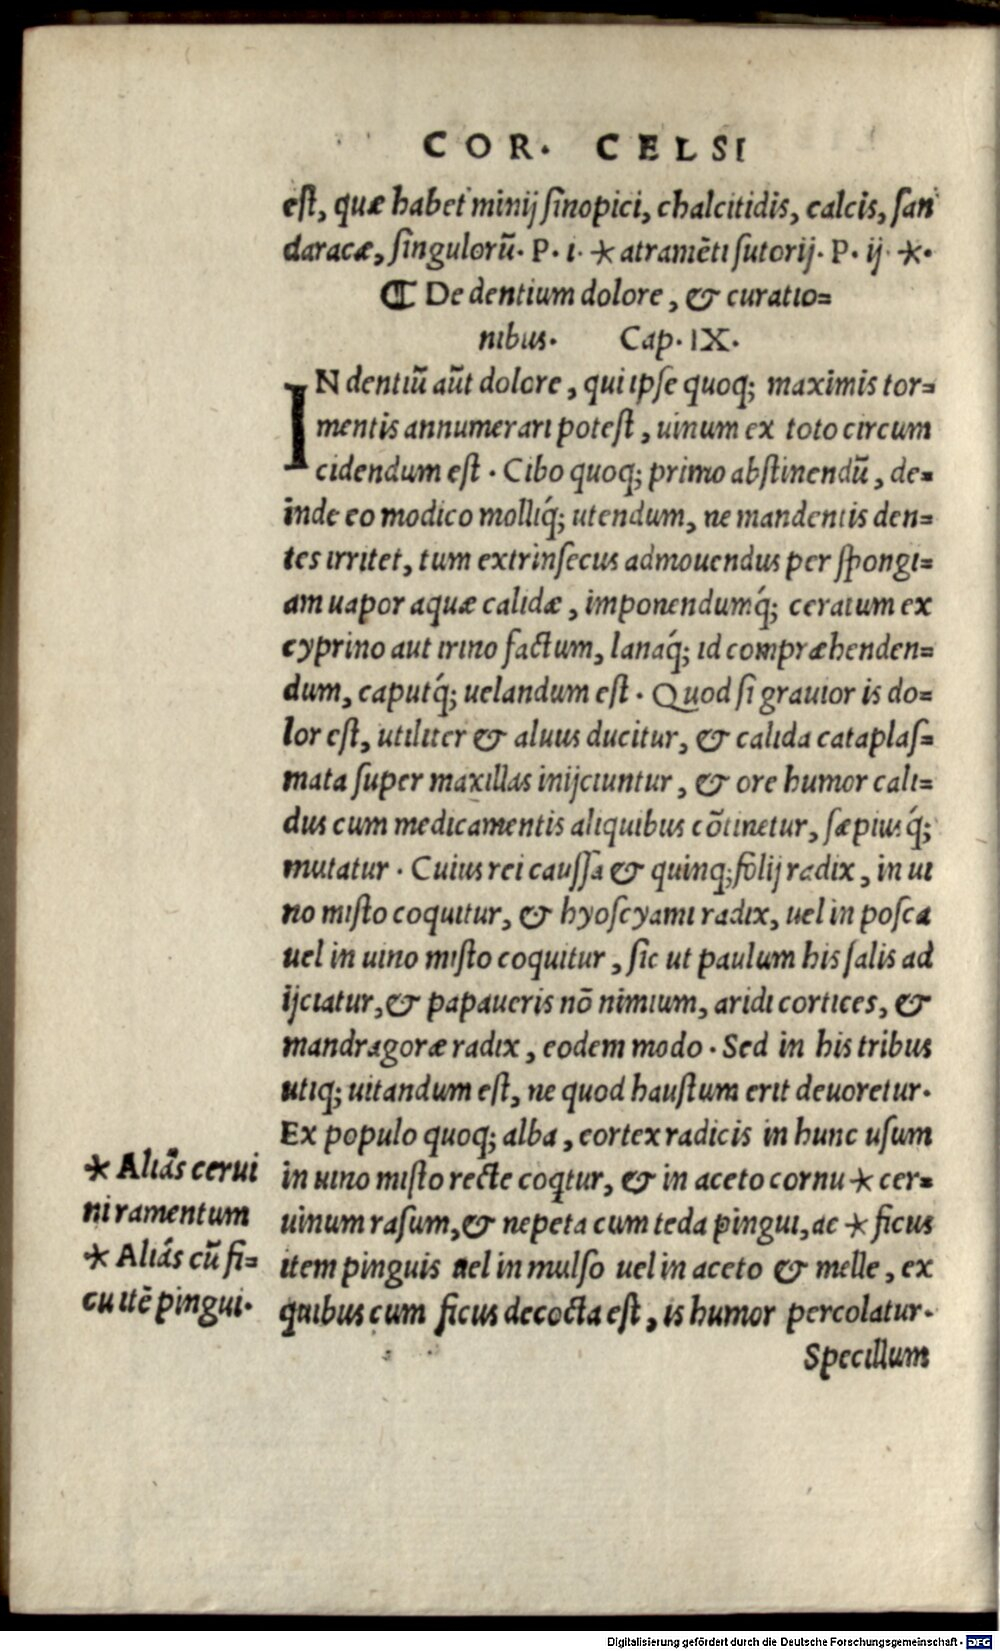 COR. CELSI
est, quæ habet minij sinopici, chalcitidis, calcis, san
daracæ, singulorũ. P. i. * atramẽti sutorij. P. ij *.
¶ De dentium dolore, & curatio=
nibus. Cap. IX.
IN dentiũ aũt dolore, qui ipse quoq; maximis tor=
mentis annumerari potest, uinum ex toto circum
cidendum est. Cibo quoq; primo abstinendũ, de=
inde eo modico molliq́; utendum, ne mandentis den=
tes irritet, tum extrinsecus admouendus per spongi=
am uapor aquæ calidæ, imponendumq́; ceratum ex
cyprino aut irino factum, lanaq́; id compræhenden=
dum, caputq́; uelandum est. Quod si grauior is do=
lor est, utiliter & aluus ducitur, & calida cataplas=
mata super maxillas inijciuntur, & ore humor cali=
dus cum medicamentis aliquibus cõtinetur, sæpiusq́;
mutatur. Cuius rei caussa & quinq;folij radix, in ui
no misto coquitur, & hyoscyami radix, uel in posca
uel in uino misto coquitur, sic ut paulum his salis ad
ijciatur, & papaueris nõ nimium, aridi cortices, &
mandragoræ radix, eodem modo. Sed in his tribus
utiq; uitandum est, ne quod haustum erit deuoretur.
Ex populo quoq; alba, cortex radicis in hunc usum
in uino misto recte coqtur, & in aceto cornu * cer=
uinum rasum, & nepeta cum teda pingui, ac * ficus
item pinguis uel in mulso uel in aceto & melle, ex
quibus cum ficus decocta est, is humor percolatur.
Specillum
* Aliâs cerui
ni ramentum
* Aliâs cũ fi=
cu itẽ pingui.
Digitalisierung gefördert durch die Deutsche Forschungsgemeinschaft - DFG